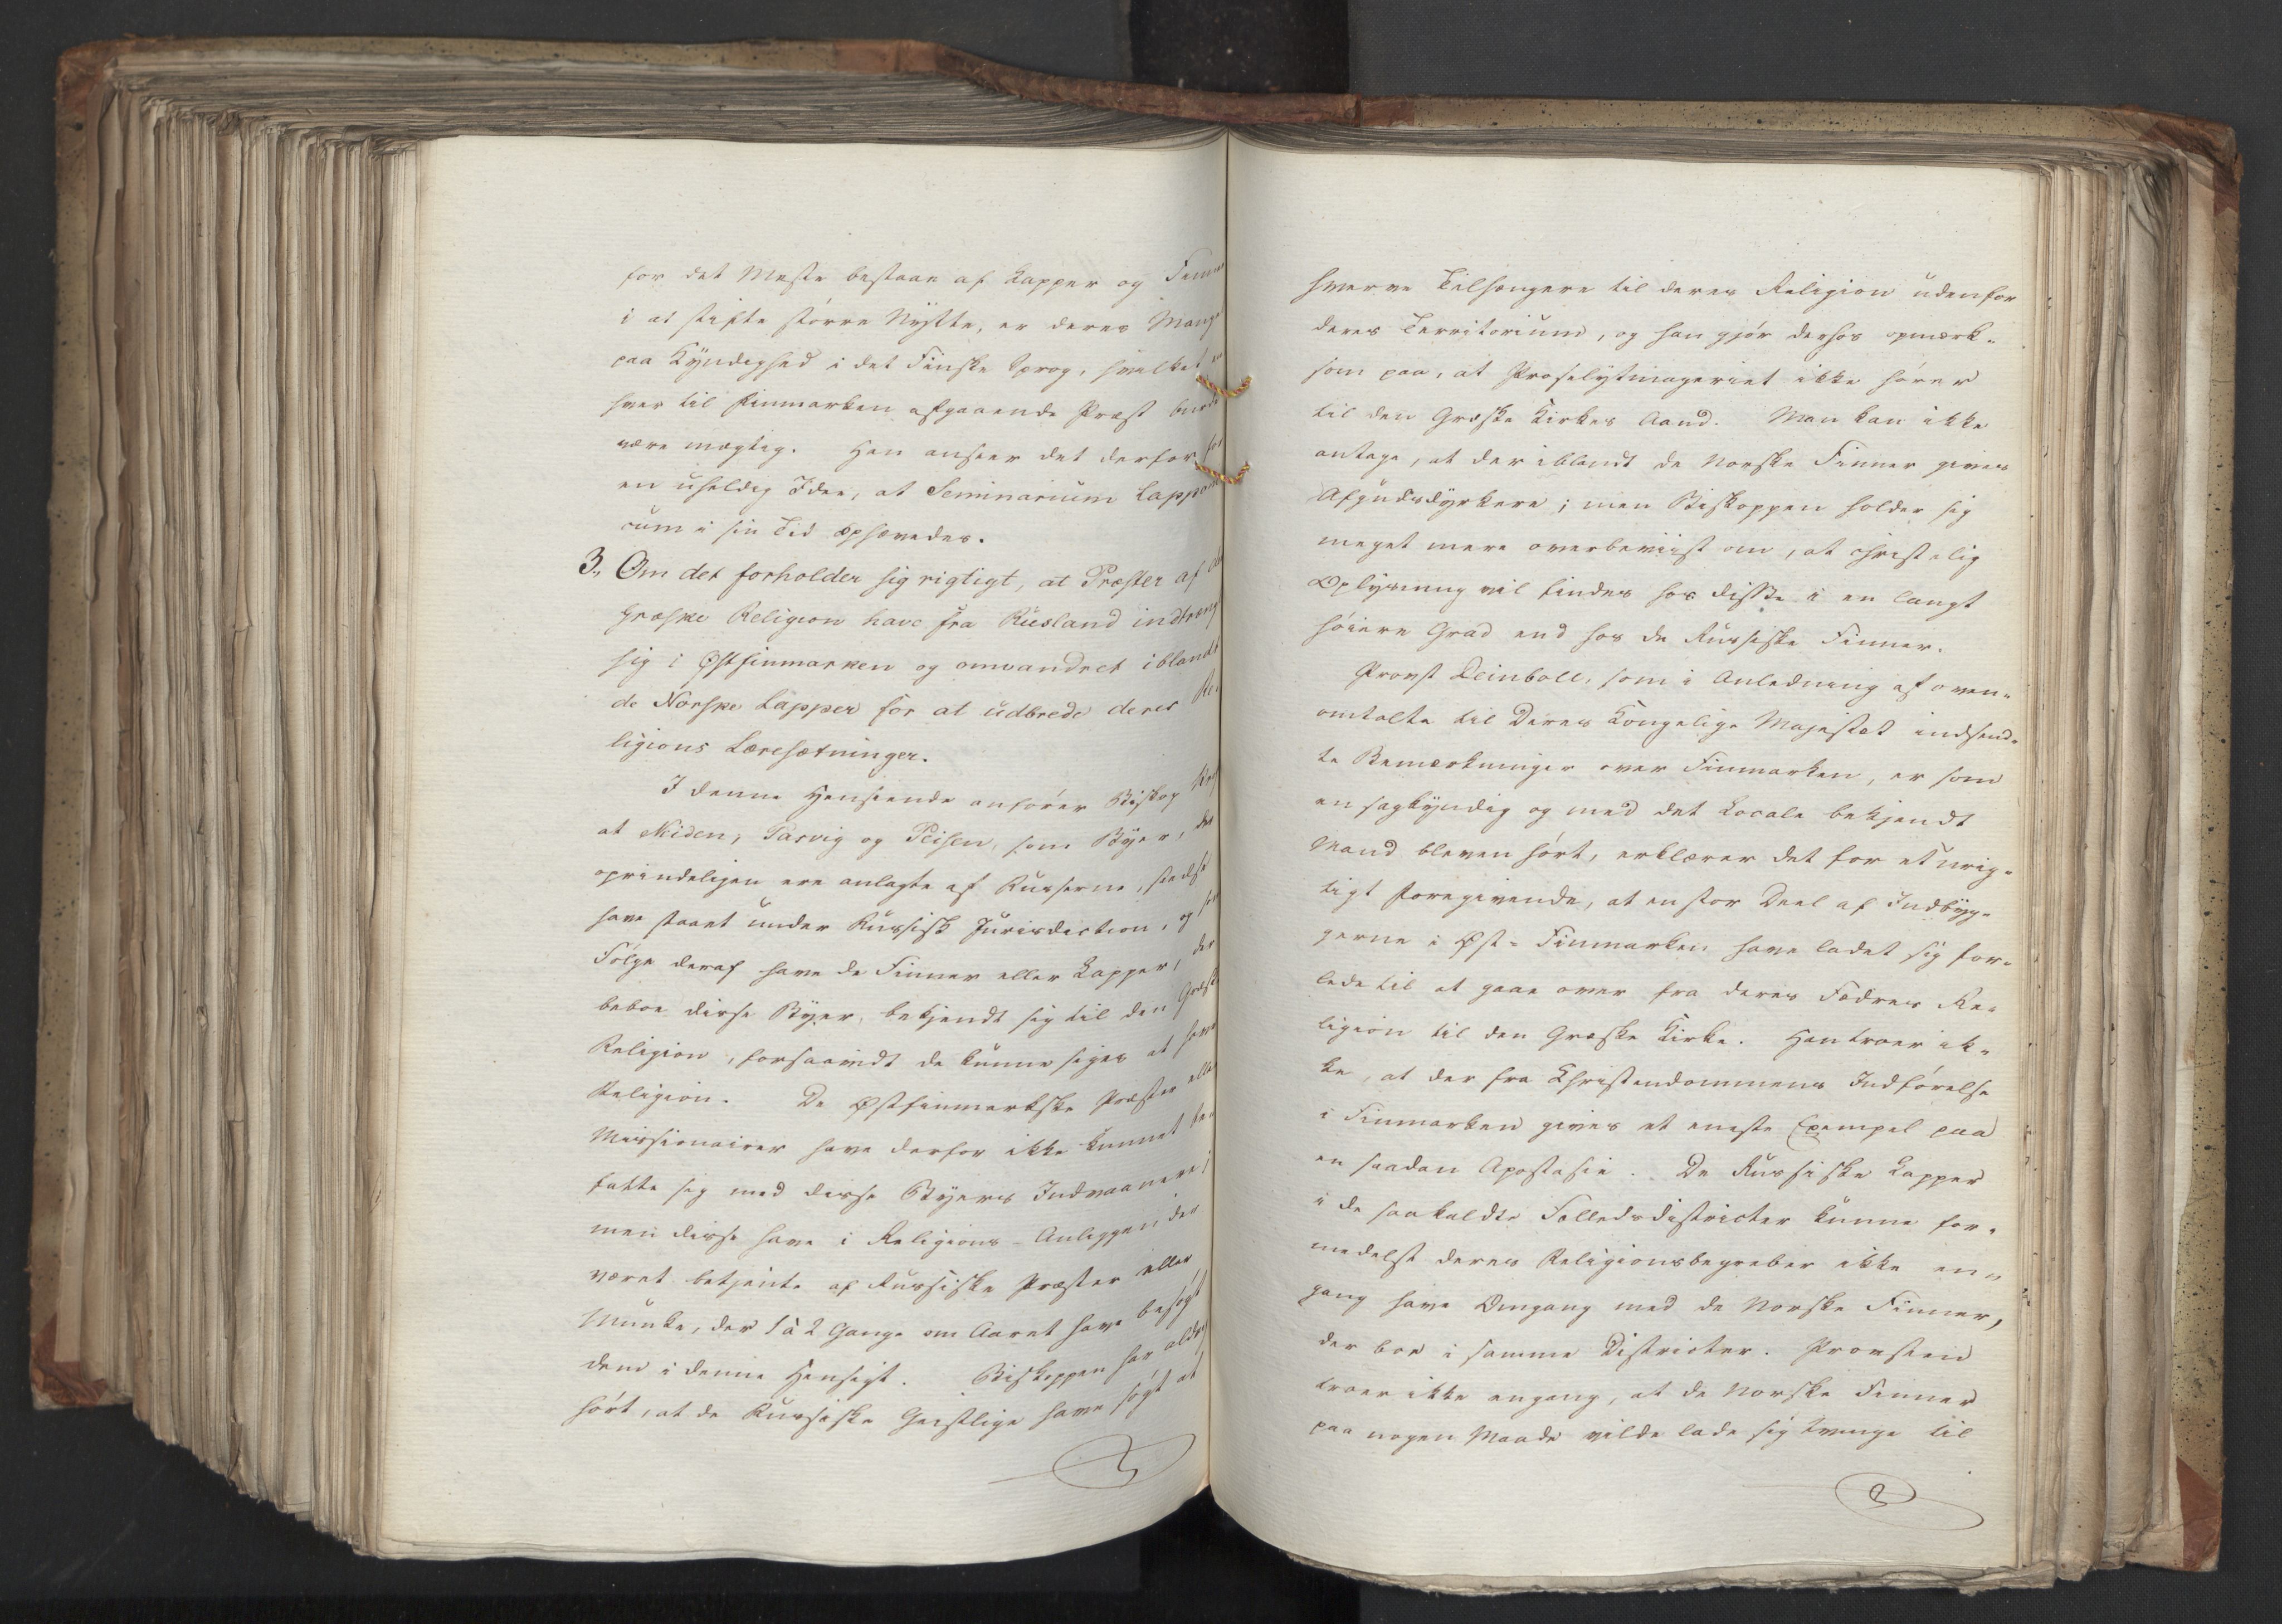 for det Meste bestaae af Lapper og Finner
i at stifte större Nytte, er deres Mangel
paa Kyndighed i det Finske Sprog, hvilket en
hver til Finmarken afgaaende Præst burde
være mægtig. Han anseer det derfor for
en uheldig Idee, at Seminarium Lapponi
cum i sin Tid ophævedes.
3, Om det forholder sig rigtigt, at Præster af den
Græske Religion have fra Rusland indtrængt
sig i Østfinmarken og omvandret iblandt
de Norske Lapper for at udbrede deres Re-
ligions Læresætninger.
I denne Henseende anfører Biskop
at Neiden, Pasvig og Peisen, som Byer, der
oprindeligen ere anlagte af Russerne, stedse
have staaet under Russisk Jurisdiction, og som
Følge deraf have de Finner eller Lapper, der
beboe disse Byer, bekjendt sig til den Græske
Religion, forsaavidt de kunne siges at have
Religion. De Østfinmarkske Præster eller
Missionairer have derfor ikke kunnet be-
fatte sig med disse Byers Indvaanere;
men disse have i Religions-Anliggender
været betjente af Russiske Præster eller
Munke, der 1 à 2 Gange om Aaret have besøgt
dem i denne Hensigt. Biskoppen har aldrig
hørt, at de Russiske Geistlige have søgt at
hverve Tilhængere til deres Religion udenfor
deres Territorium, og han gjör derhos opmærk-
som paa, at Proselytmageriet ikke hører
til den Græske Kirkes Aand. Man kan ikke
antage, at der iblandt de Norske Finner gives
Afgudsdyrkere; men Biskoppen holder sig
meget mere overbeviist om, at christelig
Oplysning vil findes hos disse i en langt
høiere Grad end hos de Russiske Finner.
Provst Deinboll, som i Anledning af oven-
omtalte til Deres Kongelige Majestæt indsend-
te Bemærkninger over Finmarken, er som
en sagkyndig og med det Locale bekjendt
Mand bleven hørt, erklærer det for et urig-
tigt Foregivende, at en stor Deel af Indbyg-
gerne i Øst-Finmarken have ladet sig for-
lede til at gaae over fra deres Fædres Re-
ligion til den Græske Kirke. Han troer ik-
ke, at der fra Christendommens Indførelse
i Finmarken gives et eneste Exempel paa
en saadan Apostasie. De Russiske Lapper
i de saakaldte Fælledsdistricter kunne for-
medelst deres Religionsbegreber ikke en-
gang have Omgang med de Norske Finner,
der boe i samme Districter. Provsten
troer ikke engang, at de Norske Finner
paa nogen Maade vilde lade sig tvinge til